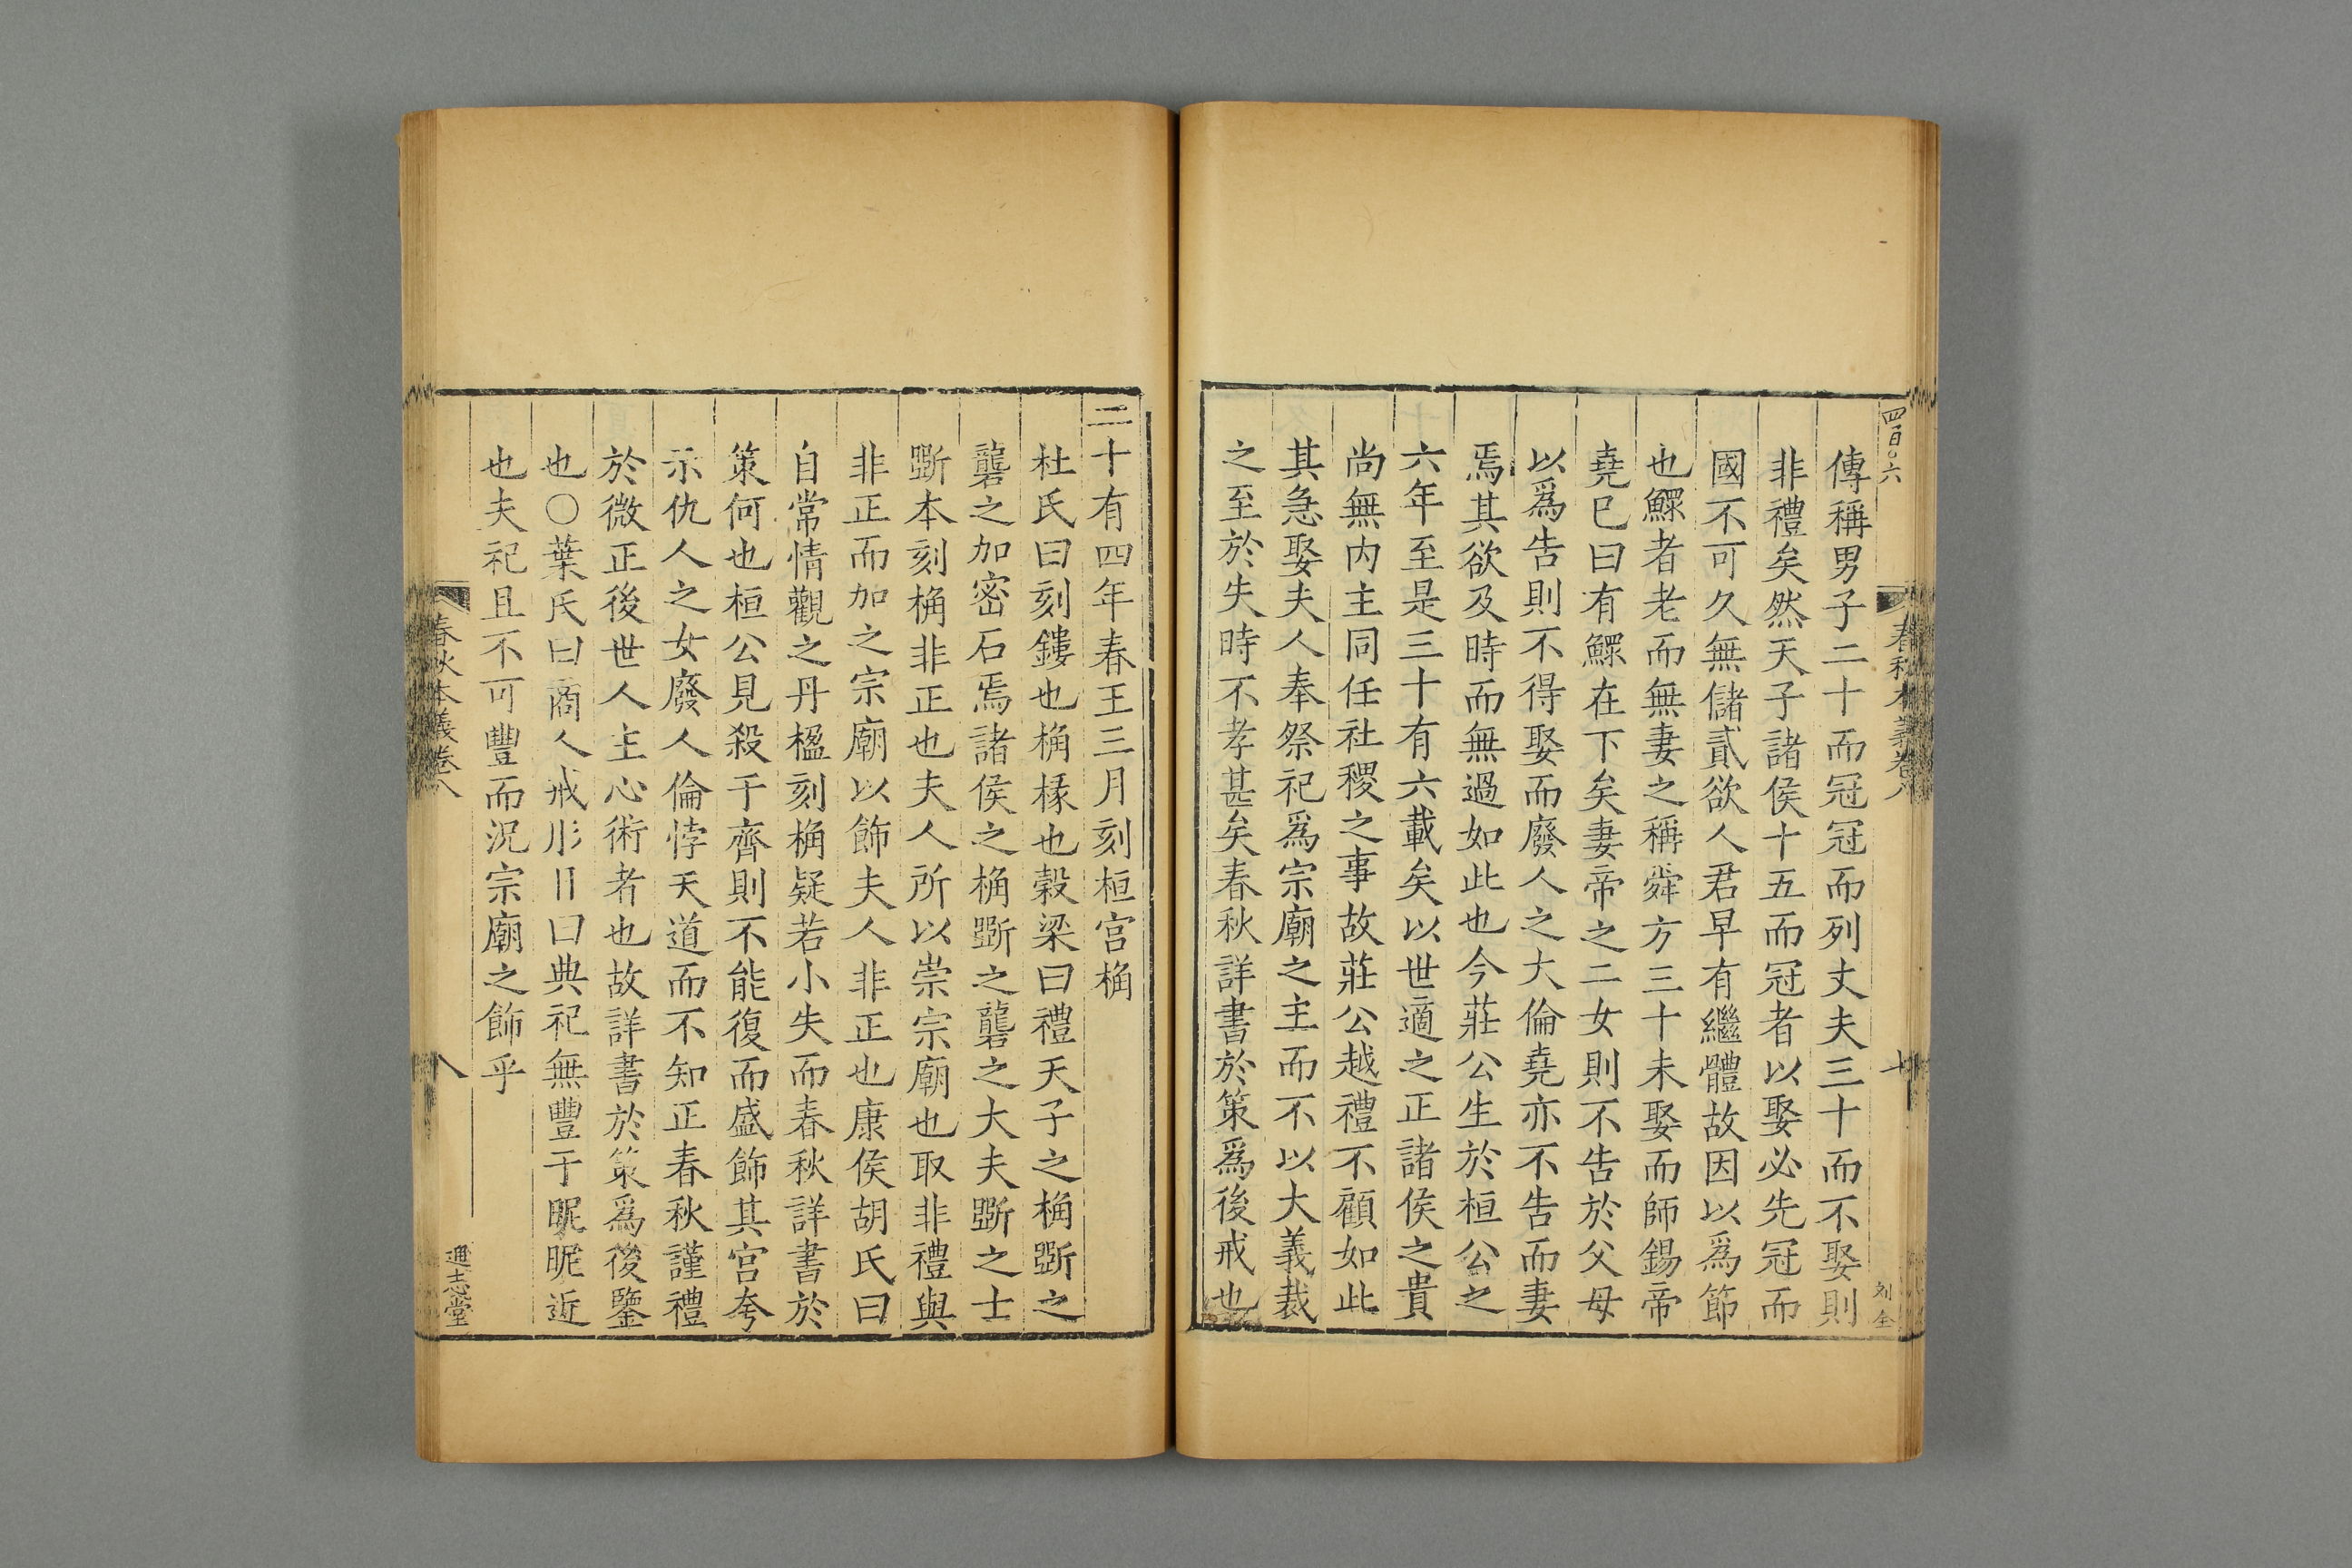 四百〇六
春秋本義卷八
刘全
傳稱男子二十而冠冠而列丈夫三十而不娶則
非禮矣然天子諸侯十五而冠者以娶必先冠而
國不可久無儲貳欲人君早有繼體故因以爲節
也鰥者老而無妻之稱舜方三十未娶而師錫帝
堯巳曰有鰥在下矣妻帝之二女則不告於父母
以爲告則不得娶而廢人之大倫堯亦不告而妻
焉其欲及時而無過如此也今莊公生於桓公之
六年至是三十有六載矣以世適之正諸侯之貴
尚無内主同任社稷之事故莊公越禮不顧如此
其急娶夫人奉祭祀爲宗廟之主而不以大義裁
之至於失時不孝甚矣春秋詳書於策爲後戒也
二十有四年春王三月刻桓宫桷
杜氏曰刻鏤也桷椽也榖梁曰禮天子之桷斲之
礱之加密石焉諸侯之桷斲之礱之大夫斲之士
斲本刻桷非正也夫人所以崇宗廟也取非禮與
非正而加之宗廟以飾夫人非正也康侯胡氏曰
自常情觀之丹楹刻桷疑若小失而春秋詳書於
策何也桓公見殺于齊則不能復而盛飾其宫夸
示仇人之女廢人倫悖天道而不知正春秋謹禮
於微正後世人主心術者也故詳書於策爲後鑒
也〇葉氏曰商人戒肜日曰典祀無豐于昵昵近
也夫祀且不可豐而況宗廟之飾乎
春秋本義卷八
八
通志堂